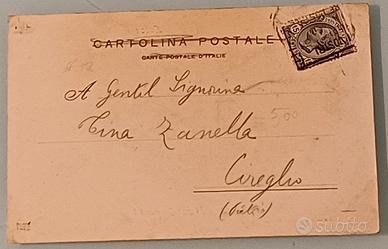 CARTOLINA POSTALE
CARTE-POSTALE D'ITALIE
A Gentil Signorina
Tina Zanella
Cireglio
500
subito